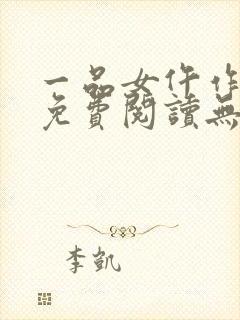 一品女仵作
免費閱讀無
李凱